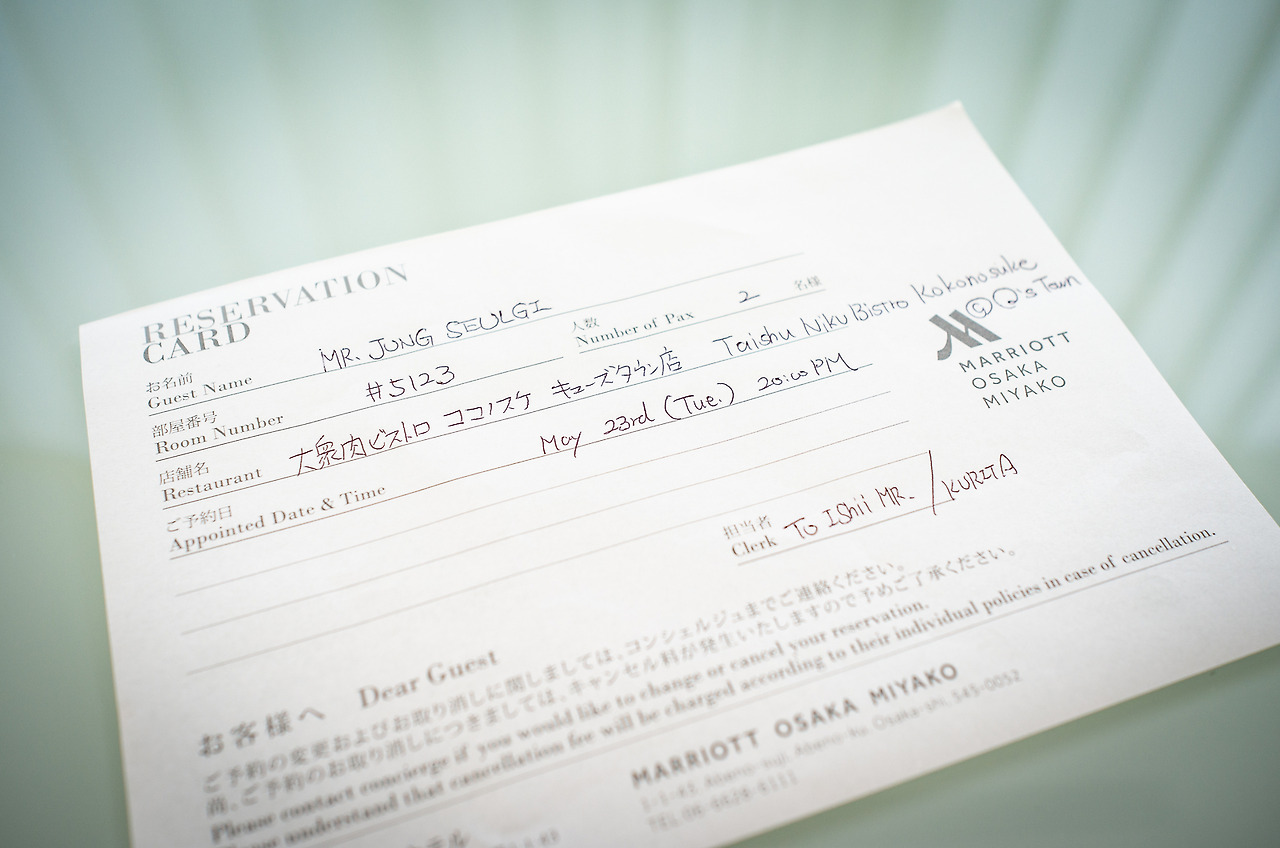 RESERVATION
CARD
お名前
Guest Name MR. JUNG SEULGI
部屋番号
Room Number #5123
人数
Number of Pax 2 名様
店舗名
Restaurant 大衆肉ビストロ ココノスケ キューズタウン店 Taishu Niku Bistro Kokonosuke
@Q's Town
ご予約日
Appointed Date & Time May 23rd (Tue.) 20:00PM
MARRIOTT
OSAKA
MIYAKO
担当者
Clerk To Ishii MR. / KURITA
お客様へ Dear Guest
ご予約の変更およびお取り消しに関しましては、コンシェルジュまでご連絡ください。
尚、ご予約のお取り消しにつきましては、キャンセル料が発生いたしますので予めご了承ください。
Please contact concierge if you would like to change or cancel your reservation.
understand that cancellation fee will be charged according to their individual policies in case of cancellation.
MARRIOTT OSAKA MIYAKO
1-1-43, Abeno-suji, Abeno-ku, Osaka-shi, 545-0052
TEL 06-6628-6111
テル